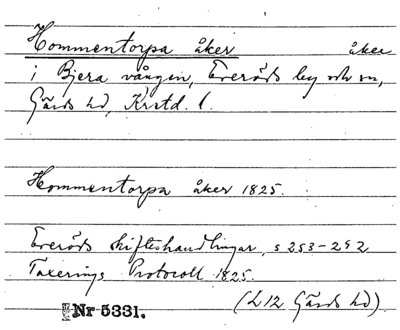 Hommentorpa åker åker
i Bjera vången, Everöds by och sn,
Gärds hd, Krstd. l.
Hommentorpa åker 1825.
Everöds skifteshandlingar, s 253-292
Taxerings Protocoll 1825.
(L12 Gärds hd)
Nr 5331.